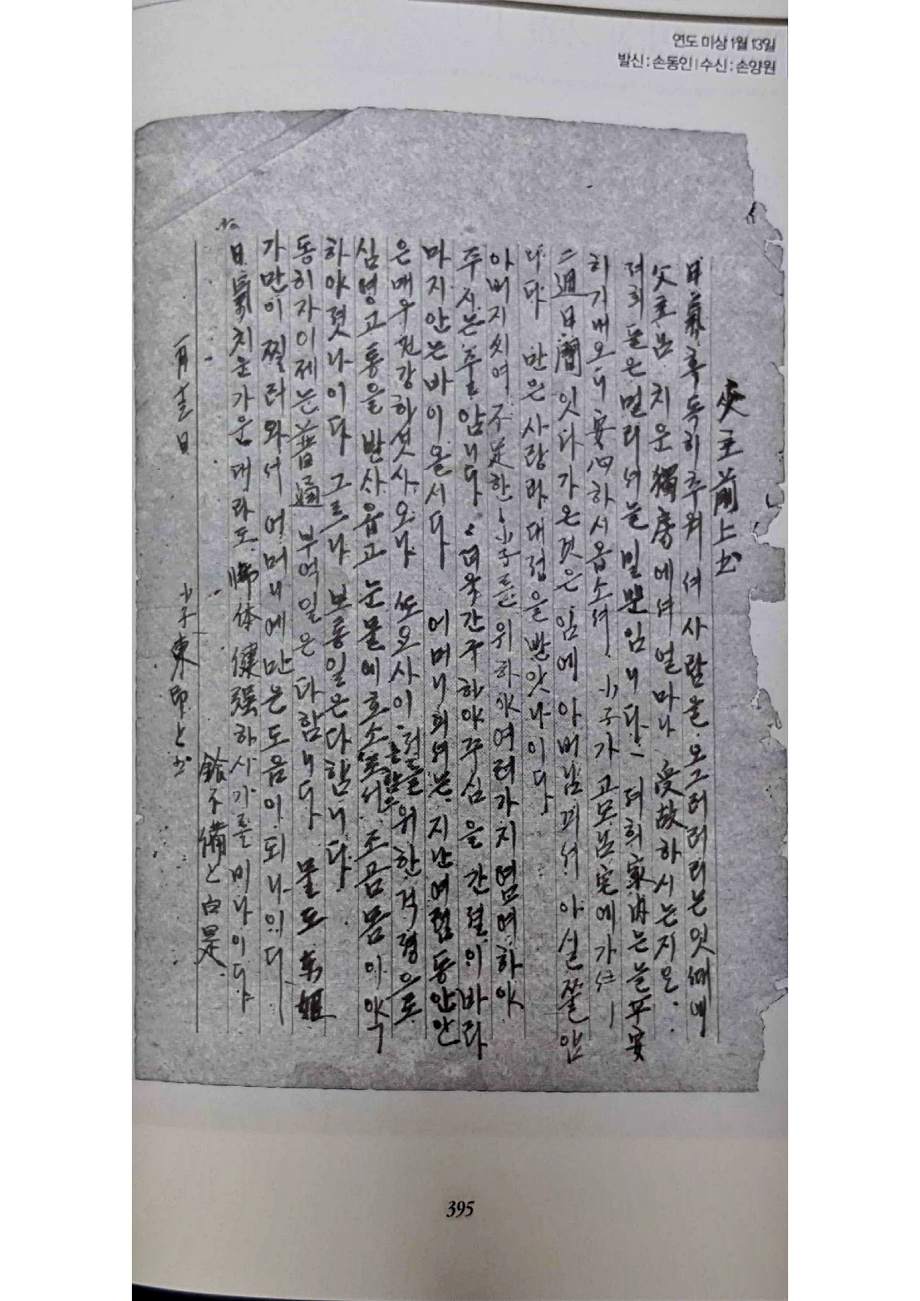 연도 미상 1월 13일
발신 : 손동인 | 수신 : 손양원
父主前上書
日氣 혹독히 추워셔 사람을 오그러러리는 잇때에
父主님 치운 獨房에셔 얼마나 受故하시는지요.
저희들은 멀리셔 눌 밀뿐임니다. 저희 家內는 늘 平安
하기 매오니 安心하시옵소셔. 小子가 고모님宅에 가
二週日間 잇다가 온것은 임에 아버님끠셔 아실쭐 암
니다. 만은 사랑바 대접을 받앗나이다.
아버지씨여 不足한 小子를 위하야 여러가지 염여하야
주시는 주 암니다. 더욱 간구하야 주심을 간절이 바라
마지안는 바이올시다. 어머니씌셔는 지난 여름 동안안
은 매우 건강하섯사오나 또 오사이 저들을 위한 걱정으로
심령고통을 받사옵고 눈물에 호소로셔 조곰 몸이 약
하야졋나이다. 그르나 보통일은 다함니다.
동히자 이제는 普通 부억일은 다함니다. 물도
가만이 찔러와셔 어머니에 만은 도음이 되나이다.
日氣 치운 가운대라도 体健强하시기를 비나이다.
餘不備上白是
一月十三日
小子 東印 上書
395